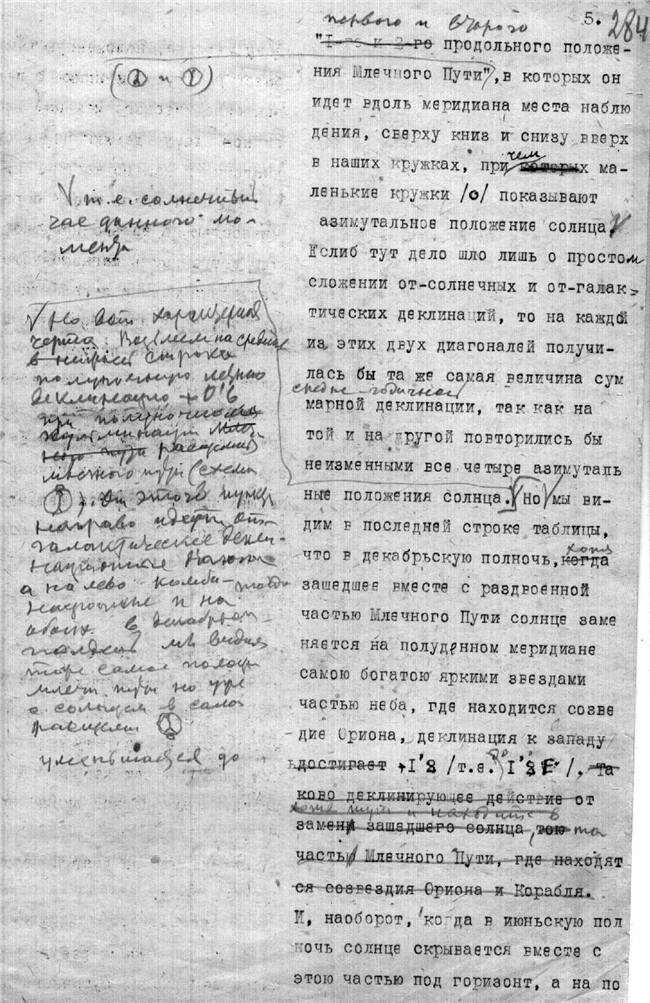 5. 284
первого и второго
"I-го и 2-го продольного положе-
ния Млечного Пути", в которых он
идет вдоль меридиана места наблю
дения, сверху книз и снизу вверх
в наших кружках, при которых ма-
чем
ленькие кружки /о/ показывают
азимутальное положение солнца
Еслиб тут дело шло лишь о простом
сложении от-солнечных и от-галак-
тических деклинаций, то на каждой
из этих двух диагоналей получи-
лась бы та же самая величина сум
средне-годичной
марной деклинации, так как на
той и на другой повторились бы
неизменными все четыре азимуталь
ные положения солнца. Но мы ви-
дим в последней строке таблицы,
что в декабрьскую полночь, когда
хотя
зашедшее вместе с раздвоенной
частью Млечного Пути солнце заме
няется на полуденном меридиане
самою богатою яркими звездами
частью неба, где находится созве
дие Ориона, деклинация к западу
достигает +I'8 /т.е. I'8 E /. Та
ково деклинирующее действие от
замены зашедшего солнца, тою та
частью Млечного Пути, где находят
ся созвездия Ориона и Корабля.
И, наоборот, когда в июньскую пол
ночь солнце скрывается вместе с
этою частью под горизонт, а на по
V т.е. солнечный
час данного мо-
мента
V Но вот характерная
черта. Возьмем на средине
в строке
полученную
деклинацию + 0'6
при полуночной
млечного пути (схема
). От этого пункта
направо идет
галактическое
а налево комби-
и на
обоих в декабрьск
полдень мы видим
тоже самое полож
млечн пути но уже
с солнцем в самом
уменьшается до